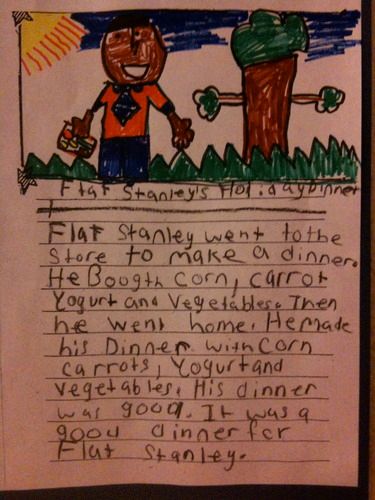 Flat Stanley's Holidaydinner
Flat Stanley went to the
Store to make a dinner.
He Boogth corn, carrot
Yogurt and Vegetables. Then
he went home. He made
his Dinner with Corn
carrots, Yogurt and
vegetables. His dinner
was good. It was a
good dinner for
Flat Stanley.